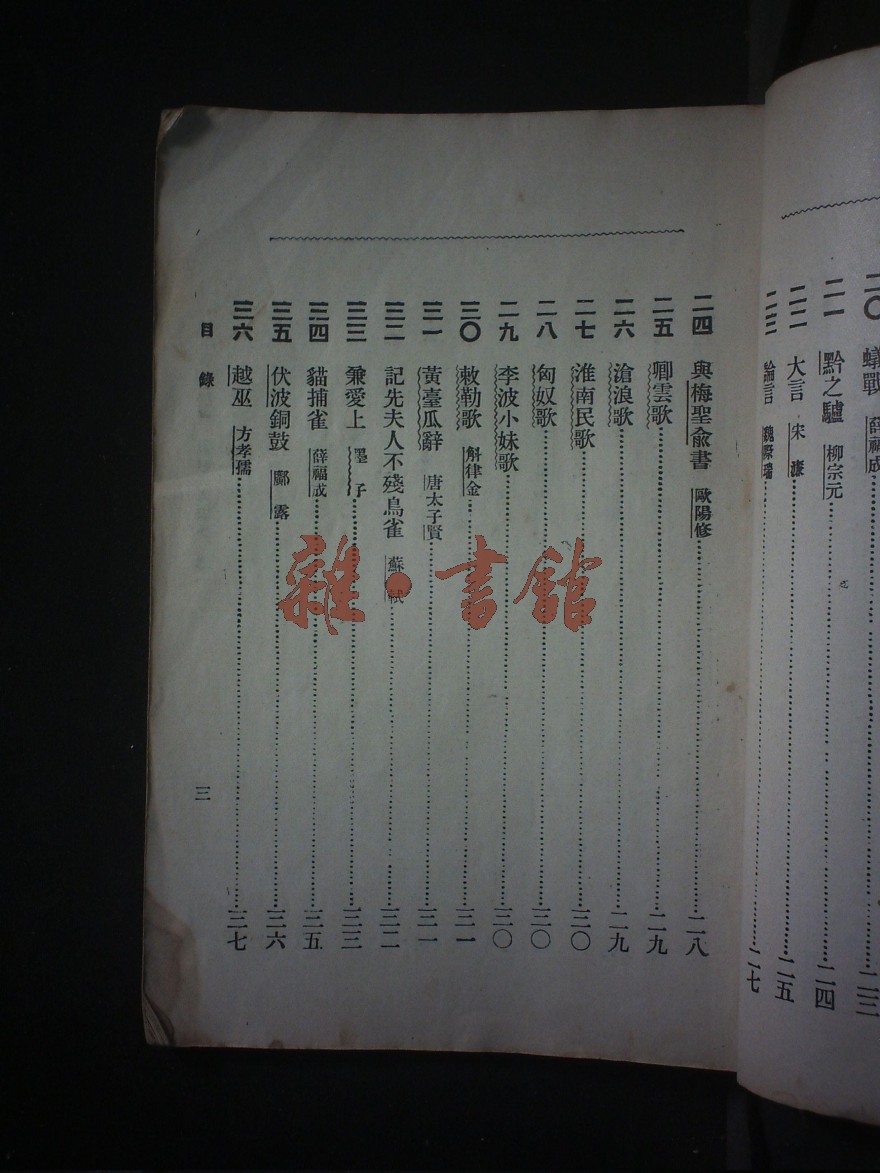 二〇 蟻戰 薛福成 二三
二一 黔之驢 柳宗元 二四
二二 大言 宋濂 二五
二三 論言 魏際瑞 二七
二四 與梅聖俞書 歐陽修 二八
二五 卿雲歌 二九
二六 滄浪歌 二九
二七 淮南民歌 三〇
二八 匈奴歌 三〇
二九 李波小妹歌 三〇
三〇 敕勒歌 斛律金 三一
三一 黃臺瓜辭 唐太子賢 三一
三二 記先夫人不殘鳥雀 蘇軾 三二
三三 兼愛上 墨子 三三
三四 貓捕雀 薛福成 三五
三五 伏波銅鼓 鄺露 三六
三六 越巫 方孝孺 三七
目錄
三
雜·書館